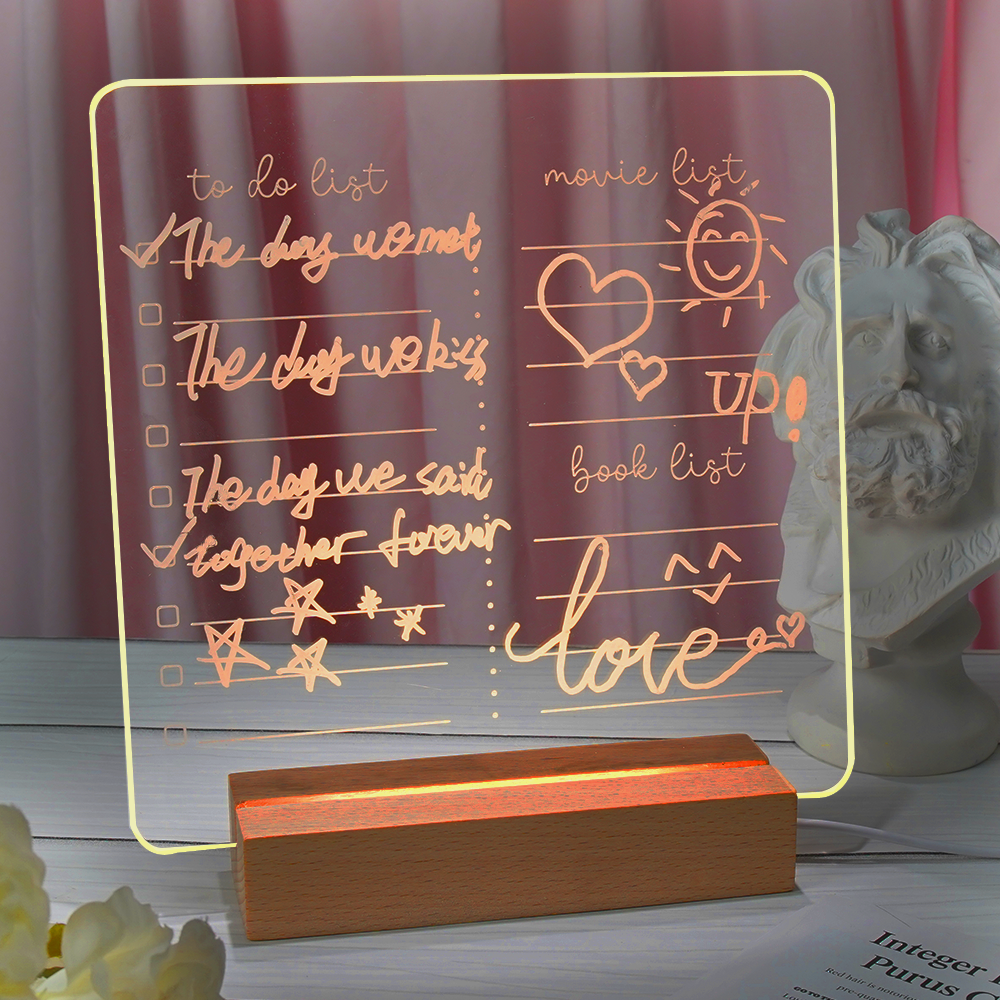 to do list
The day we met
The day we kiss
The day we said
together forever
movie list
up!
book list
love
Integer
Purus
Red hair is